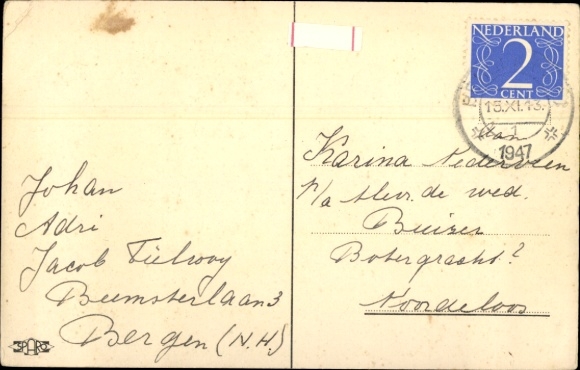 NEDERLAND
2
CENT
15.XI.13.
1
1947
Aan
Karina Nederveen
p/a Mevr. de wed.
Buizer
Botergracht?
Noordeloos
Johan
Adri
Jacob
Beemsterlaan 3
Bergen (N.H.)
SPARO